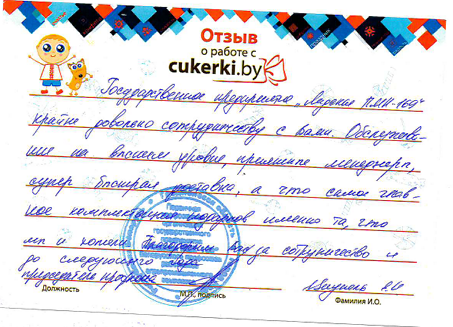 Отзыв
о работе с
cukerki.by
Государственное предприятие
крайне довольно сотрудничеству с вами. Обслужива-
ние на высшем уровне, приятные менеджера,
супер быстрая доставка, а что самое глав-
ное комплектация подарков именно та, что
мы и хотели Благодарим Вас за сотрудничество и
до следующего года
председатель профкома
Должность
М.П., подпись
Фамилия И.О.